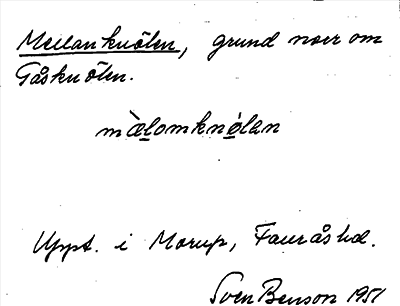 Mellanknölen, grund norr om
Gåsknölen.
mæ̀lomknølan
Uppt. i Morup, Faurås hd.
Sven Benson 1951